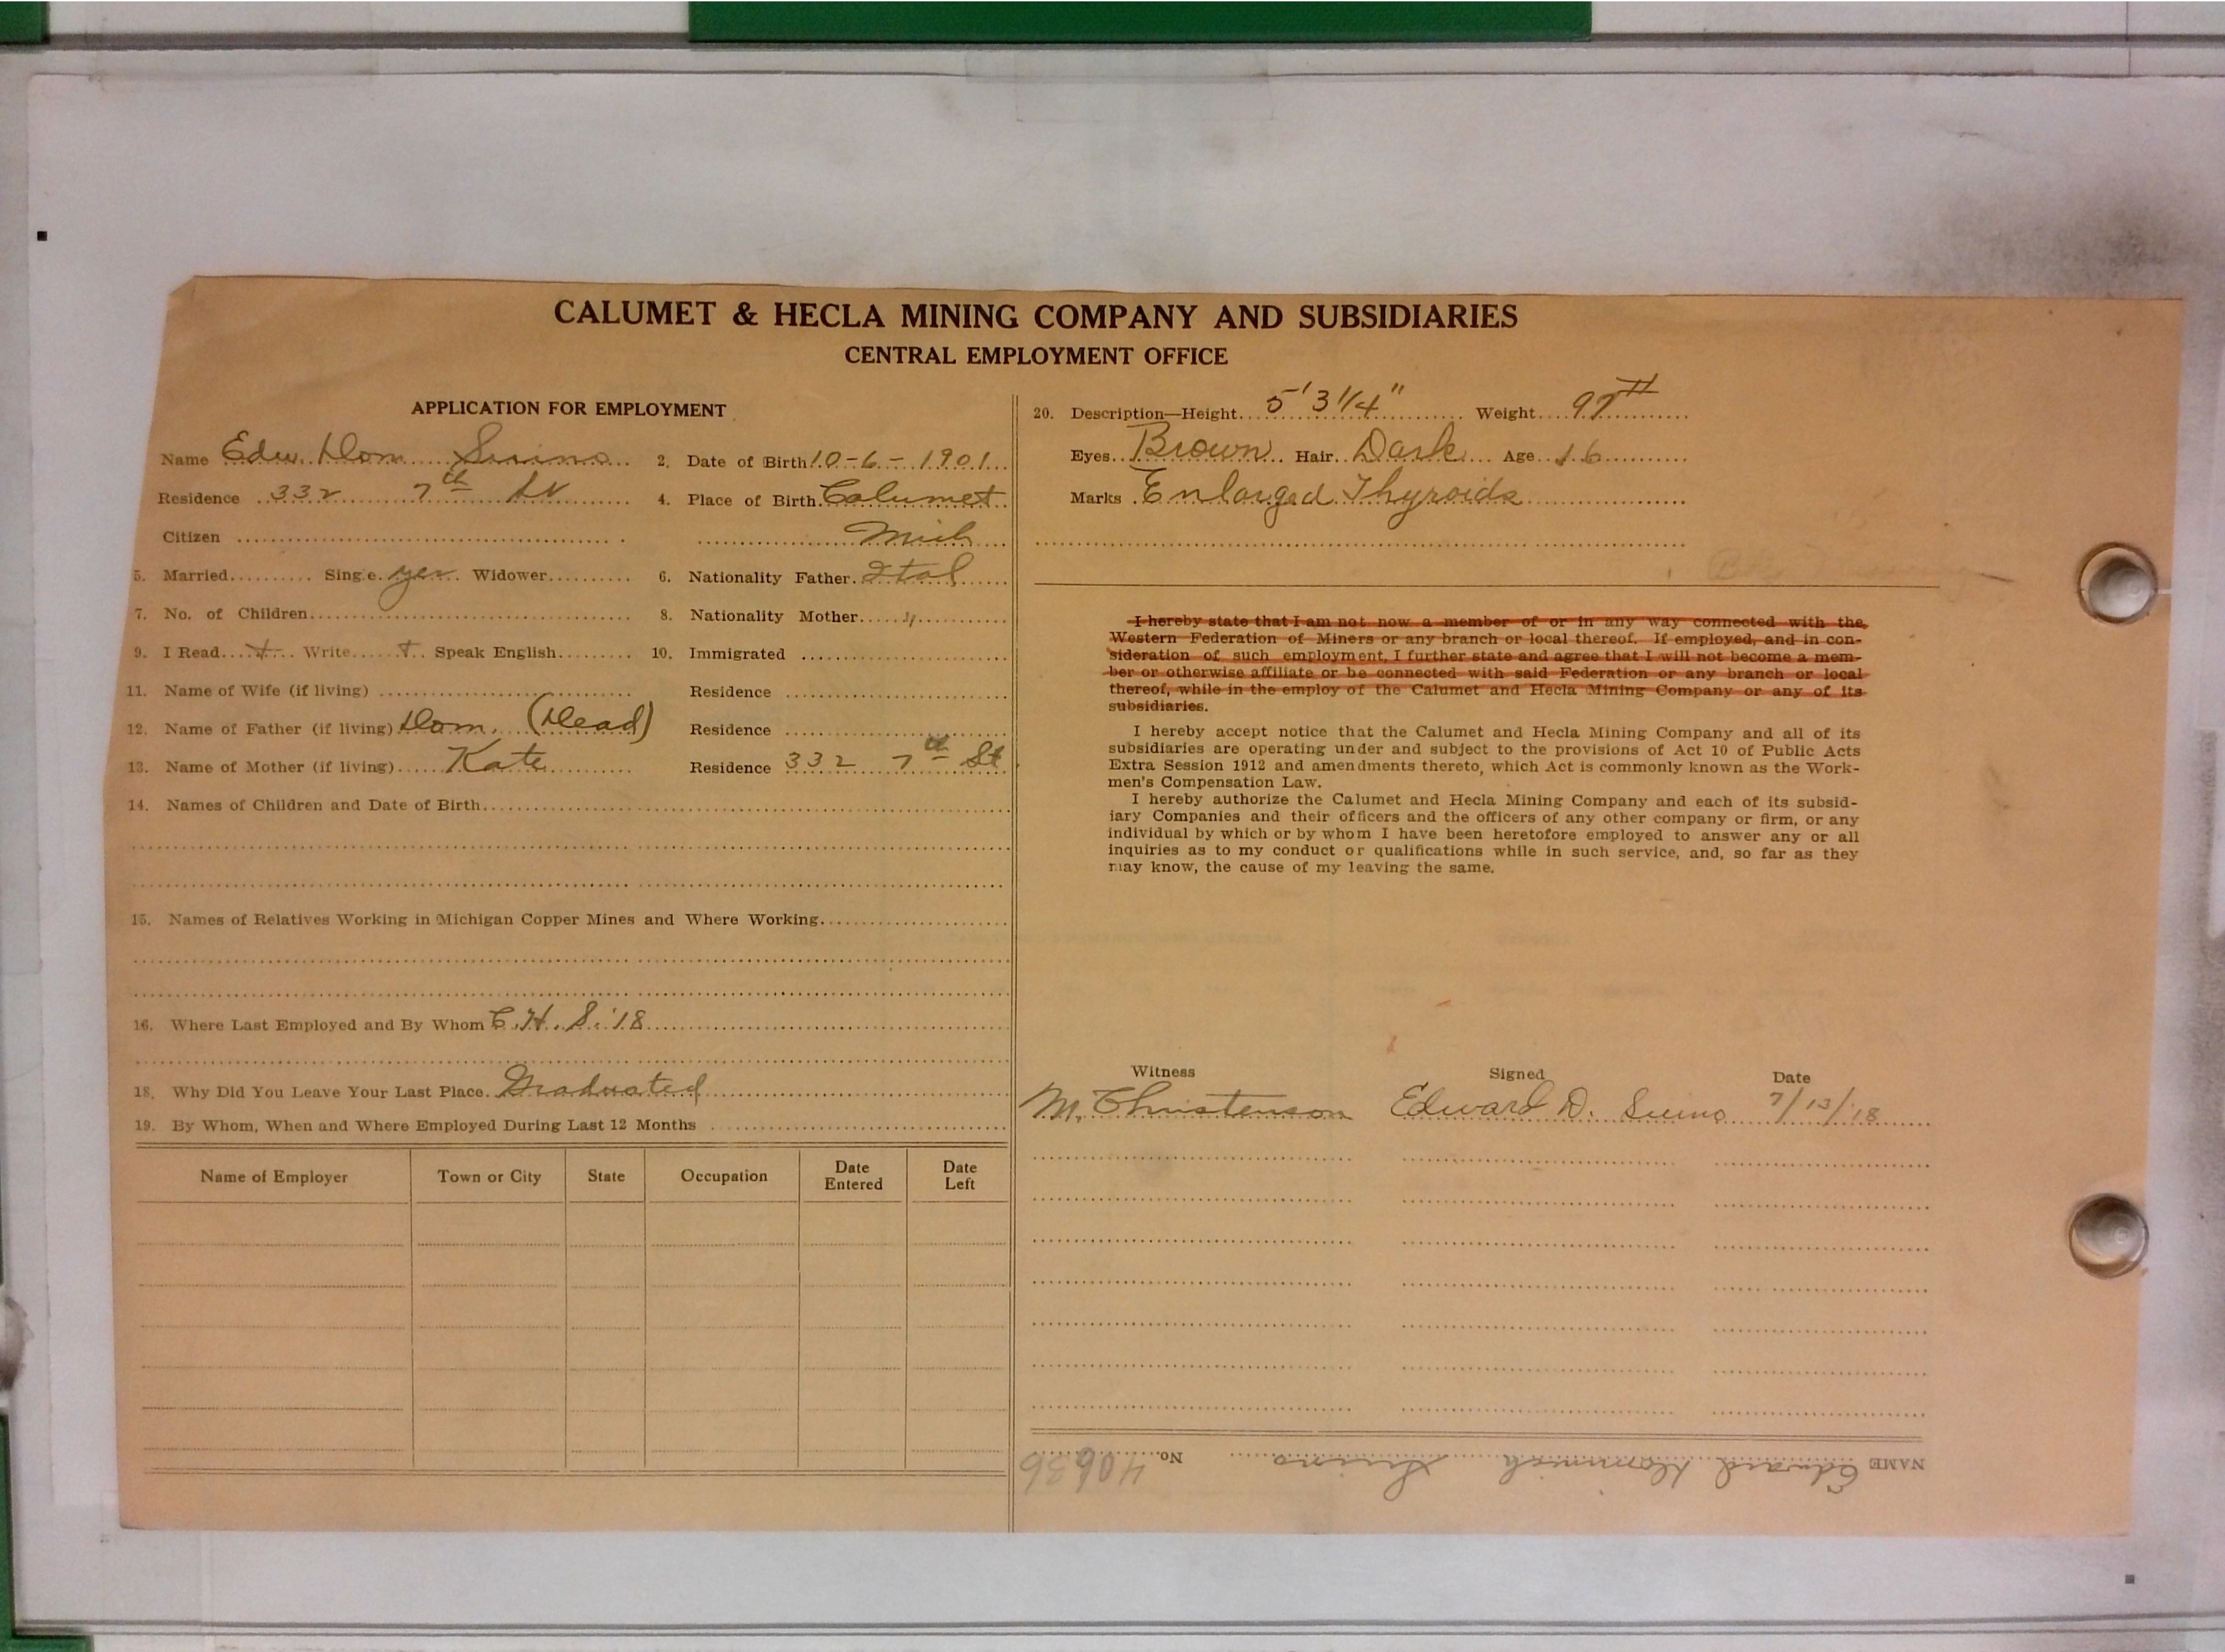 CALUMET & HECLA MINING COMPANY AND SUBSIDIARIES
CENTRAL EMPLOYMENT OFFICE
APPLICATION FOR EMPLOYMENT
Name Edw. Dom
2. Date of Birth 10-6-1901
Residence 332 7th St
4. Place of Birth Calumet
Citizen
Mich
5. Married Single yes Widower
6. Nationality Father Ital
7. No. of Children
8. Nationality Mother "
9. I Read + Write + Speak English
10. Immigrated
11. Name of Wife (if living)
Residence
12. Name of Father (if living) Dom. (Dead)
Residence
13. Name of Mother (if living) Kate
Residence 332 7th St
14. Names of Children and Date of Birth
15. Names of Relatives Working in Michigan Copper Mines and Where Working
16. Where Last Employed and By Whom C. H. S. '18
18. Why Did You Leave Your Last Place. Graduated
19. By Whom, When and Where Employed During Last 12 Months
Name of Employer Town or City State Occupation Date Entered Date Left
20. Description—Height 5' 3 1/4" Weight 97#
Eyes Brown Hair Dark Age 16
Marks Enlarged Thyroids
I hereby state that I am not now a member of or in any way connected with the
Western Federation of Miners or any branch or local thereof. If employed, and in con-
sideration of such employment, I further state and agree that I will not become a mem-
ber or otherwise affiliate or be connected with said Federation or any branch or local
thereof, while in the employ of the Calumet and Hecla Mining Company or any of its
subsidiaries.
I hereby accept notice that the Calumet and Hecla Mining Company and all of its
subsidiaries are operating under and subject to the provisions of Act 10 of Public Acts
Extra Session 1912 and amendments thereto, which Act is commonly known as the Work-
men's Compensation Law.
I hereby authorize the Calumet and Hecla Mining Company and each of its subsid-
iary Companies and their officers and the officers of any other company or firm, or any
individual by which or by whom I have been heretofore employed to answer any or all
inquiries as to my conduct or qualifications while in such service, and, so far as they
may know, the cause of my leaving the same.
Witness Signed Date
M. Christenson Edward D. 7/13/18
NAME Edward Dominick No. 40636